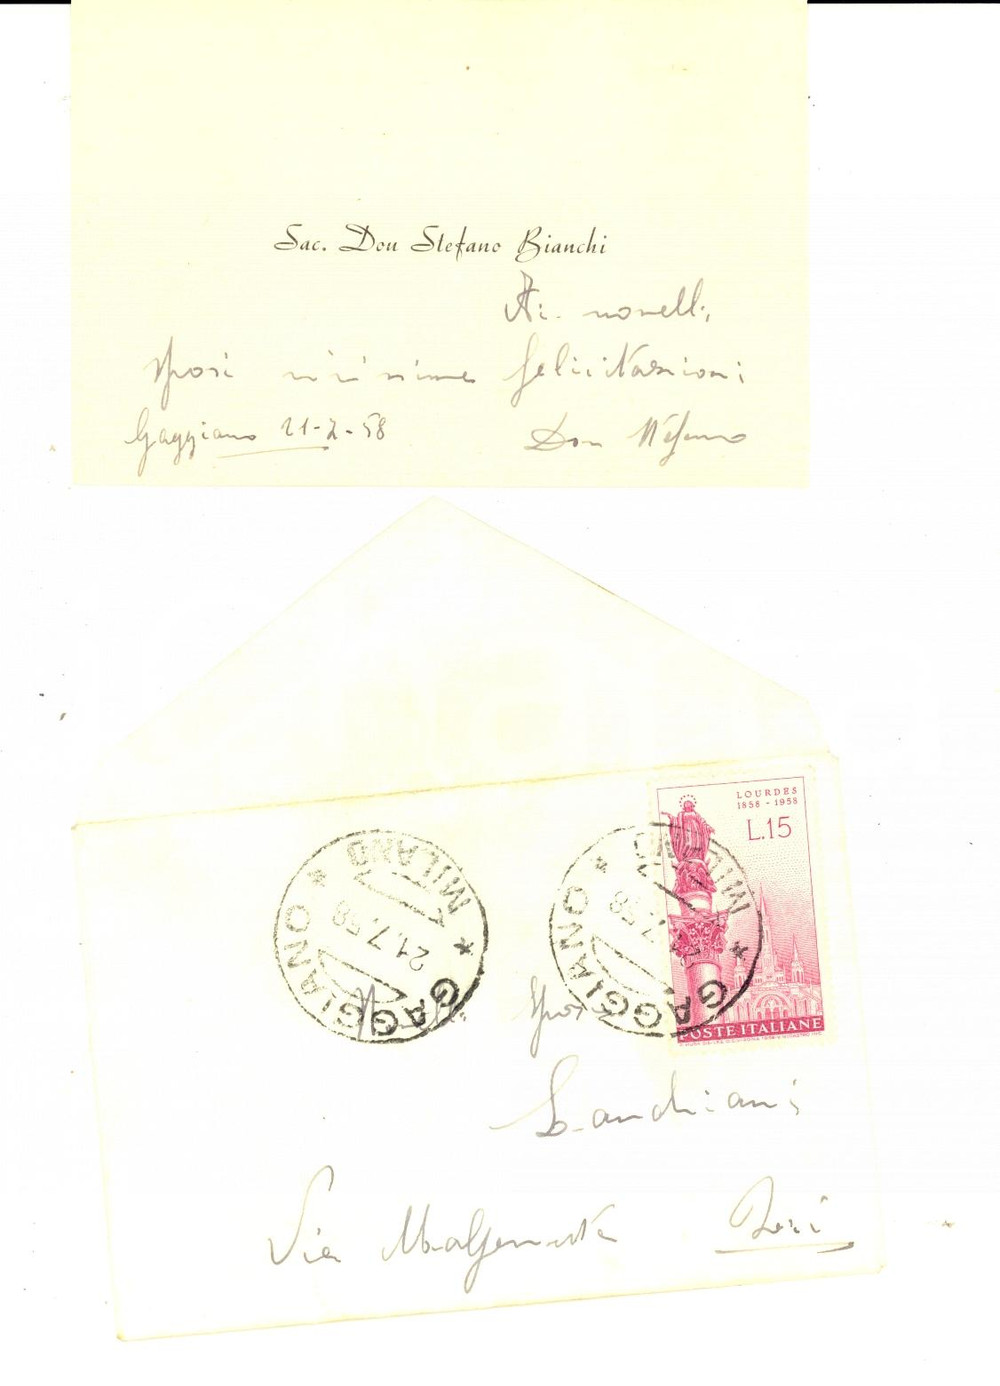 Sac. Don Stefano Bianchi
Ai novelli
sposi vivissime felicitazioni
Gaggiano 21-7-58 Don Stefano
LOURDES
1858 - 1958
L.15
POSTE ITALIANE
GAGGIANO * MILANO *
21.7.58
GAGGIANO * MILANO *
21.7.58
Sposi
Landriani
Via